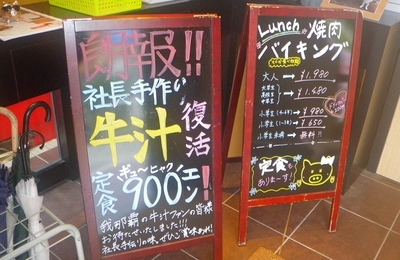 朗報!!
社長手作り
牛汁
復活
ギュ〜ヒャク
定食900エン!
我那覇の牛汁ファンの皆様
お待たせいたしました!!!
社長手伝りの味、ぜひご賞味あれ!
Lunch 焼肉
バイキング
大人 → ¥1,980
大学生
高校生 → ¥1,480
中学生
小学生(4-6年) → ¥980
小学生(1-3年) → ¥650
小学生未満 → 無料!!
定食も
ありまーす!